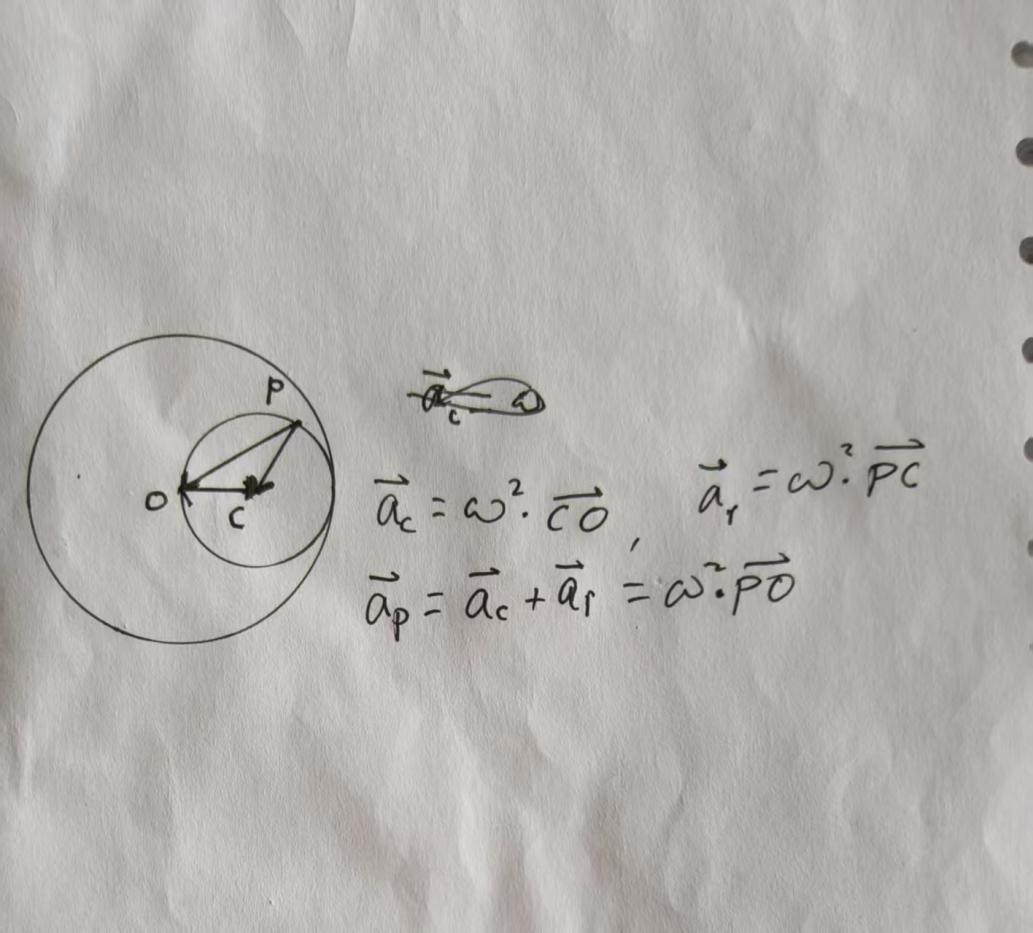 P
O
C
a⃗_c = ω²·C͞O⃗ , a⃗_r = ω²·P͞C⃗
a⃗_p = a⃗_c + a⃗_r = ω²·P͞O⃗